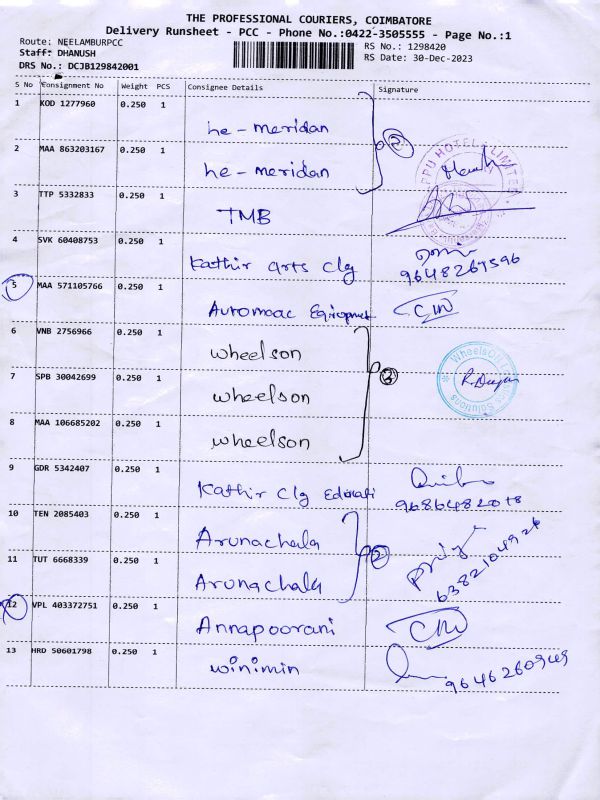 THE PROFESSIONAL COURIERS, COIMBATORE
Delivery Runsheet - PCC - Phone No.:0422-3505555 - Page No.:1
Route: NEELAMBURPCC
RS No.: 1298420
Staff: DHANUSH
RS Date: 30-Dec-2023
DRS No.: DCJB129842001
S No Consignment No Weight PCS Consignee Details Signature
1 KOD 1277960 0.250 1 he-meridan
2
2 MAA 863203167 0.250 1 he-meridan
3 TTP 5332833 0.250 1 TMB
4 SVK 60408753 0.250 1 Kathir arts clg 9648267596
5 MAA 571105766 0.250 1 Automac
6 VNB 2756966 0.250 1 wheelson
7 SPB 30042699 0.250 1 wheelson
3
8 MAA 106685202 0.250 1 wheelson
9 GDR 5342407 0.250 1 Kathir clg Educati 9686482018
10 TEN 2085403 0.250 1 Arunachala
2
11 TUT 6668339 0.250 1 Arunachala 6382104926
12 VPL 403372751 0.250 1 Annapoorani
13 HRD 50601798 0.250 1 winimin